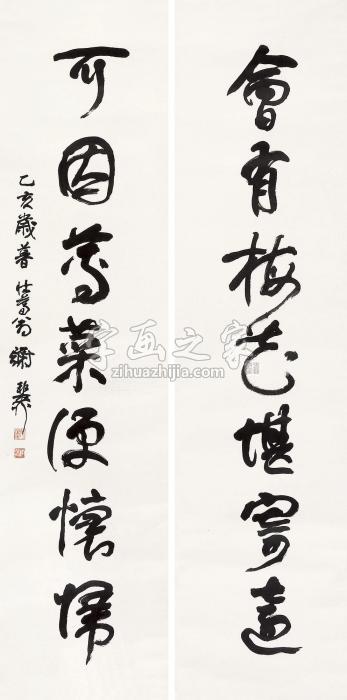 會有梅花堪寄遠
可因蓴菜便懷歸
乙亥歲暮 壯暮翁 謝稚
字画之家
zihuazhijia.com